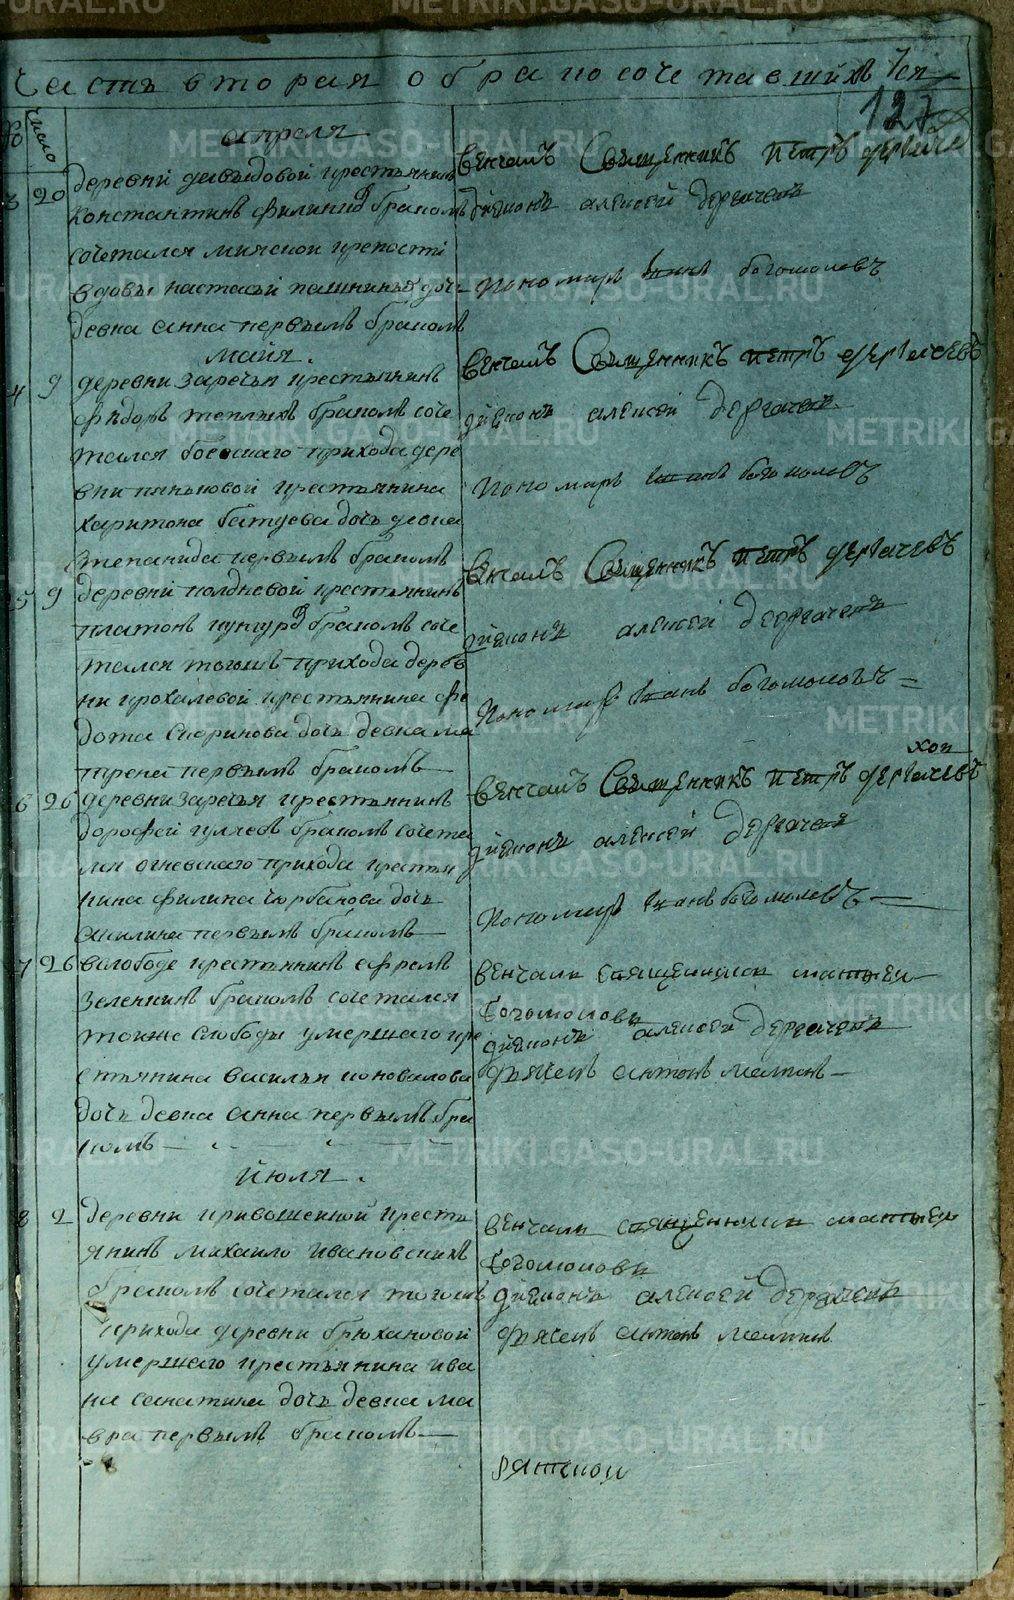 Часть вторая о бракосочетавшихся
127
№
число
апреля
3 20 деревни давыдовой крестьянинъ
константинъ филинъ бракомъ
сочетался мияской крепости
вдовы настасьи пашнины дочь
девка анна первымъ бракомъ
венчалъ Священникъ петръ
дияконъ алексей дергачевъ
пономарь иванъ богомоловъ
майя.
4 9 деревни заречья крестьянинъ
федоръ теплыхъ бракомъ соче
тался боевскаго прихода дере
вни крестьянина
харитона батуева дочь девка
степанида первымъ бракомъ
венчалъ Священникъ петръ дергачевъ
дияконъ алексей дергачевъ
пономарь иванъ богомоловъ
5 9 деревни полдневой крестьянинъ
платонъ бракомъ соче
тался тогожъ прихода дерев
ни крохалевой крестьянина фе
дота скоринова дочь девка ма
трена первымъ бракомъ
венчалъ Священникъ петръ дергачевъ
дияконъ алексей дергачевъ
пономарь иванъ богомоловъ
6 26 деревни заречья крестьянинъ
дорофей гуляевъ бракомъ сочета
лся огневскаго прихода крестья
нина филипа чюрбакова дочь
акилина первымъ бракомъ
венчалъ Священникъ петръ дергачевъ
дияконъ алексей дергачевъ
пономарь иванъ богомоловъ
7 26 вслободе крестьянинъ ефремъ
зеленинъ бракомъ сочетался
тояже слободы умершаго кре
стьянина василья коновалова
дочь девка анна первымъ бра
комъ
венчали священники матвеи
богомоловъ
дияконъ алексей дергачевъ
дьячекъ антонъ малтинъ
июля.
8 2 деревни кривошеиной кресть
янинъ михаило ивановскихъ
бракомъ сочетался тогожъ
прихода деревни брюхановой
умершаго крестьянина ива
на санатина дочь девка ма
вра первымъ бракомъ
венчали священники матвеи
богомоловъ
дияконъ алексей дергачевъ
дьячекъ антонъ малтинъ
METRIKI.GASO-URAL.RU